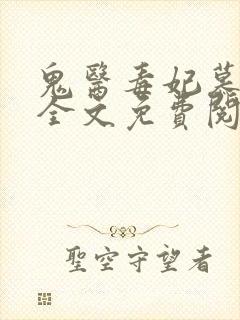 鬼醫毒妃慕
全文免費閱
聖空守望者